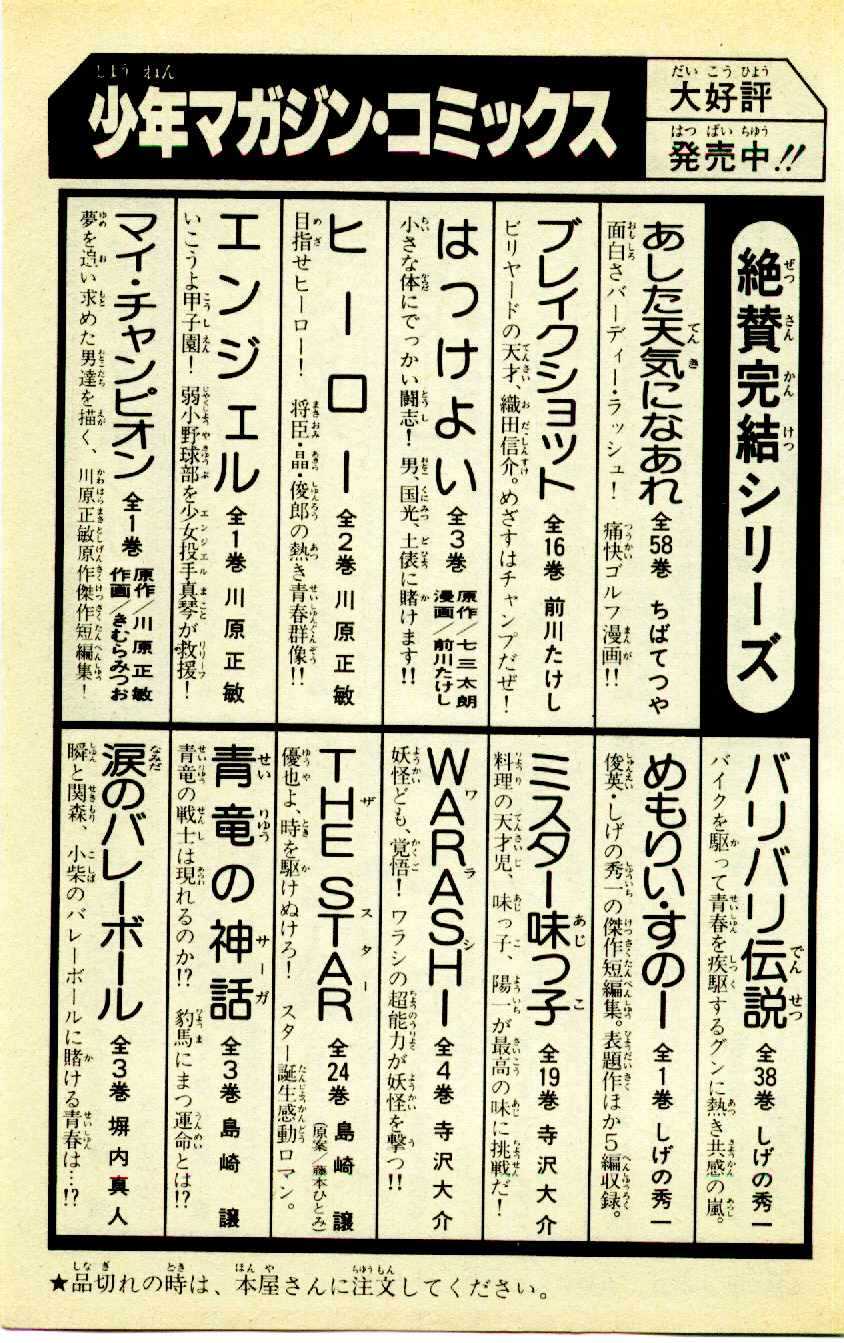 少年マガジン・コミックス
大好評
発売中!!
絶賛完結シリーズ
あした天気になあれ 全58巻 ちばてつや
面白さバーディー・ラッシュ! 痛快ゴルフ漫画!!
ブレイクショット 全16巻 前川たけし
ビリヤードの天才、織田信介。めざすはチャンプだぜ!
はっけよい 全3巻 原作/七三太朗 漫画/前川たけし
小さな体にでっかい闘志! 男、国光、土俵に賭けます!!
ヒーロー 全2巻 川原正敏
目指せヒーロー! 将臣・晶・俊郎の熱き青春群像!!
エンジェル 全1巻 川原正敏
いこうよ甲子園! 弱小野球部を少女投手真琴が救援!
マイ・チャンピオン 全1巻 原作/川原正敏 作画/きむらみつお
夢を追い求めた男達を描く、川原正敏原作傑作短編集!
バリバリ伝説 全38巻 しげの秀一
バイクを駆って青春を疾駆するグンに熱き共感の嵐。
めもりい・すのー 全1巻 しげの秀一
俊英・しげの秀一の傑作短編集。表題作ほか5編収録。
ミスター味っ子 全19巻 寺沢大介
料理の天才児、味っ子、陽一が最高の味に挑戦だ!
WARASHI 全4巻 寺沢大介
妖怪ども、覚悟! ワラシの超能力が妖怪を撃つ!!
THE STAR 全24巻 島崎譲 (原案/藤本ひとみ)
優也よ、時を駆けぬけろ! スター誕生感動ロマン。
青竜の神話 全3巻 島崎譲
青竜の戦士は現れるのか!? 豹馬にまつ運命とは!?
涙のバレーボール 全3巻 塀内真人
瞬と関森、小柴のバレーボールに賭ける青春は…!?
★品切れの時は、本屋さんに注文してください。